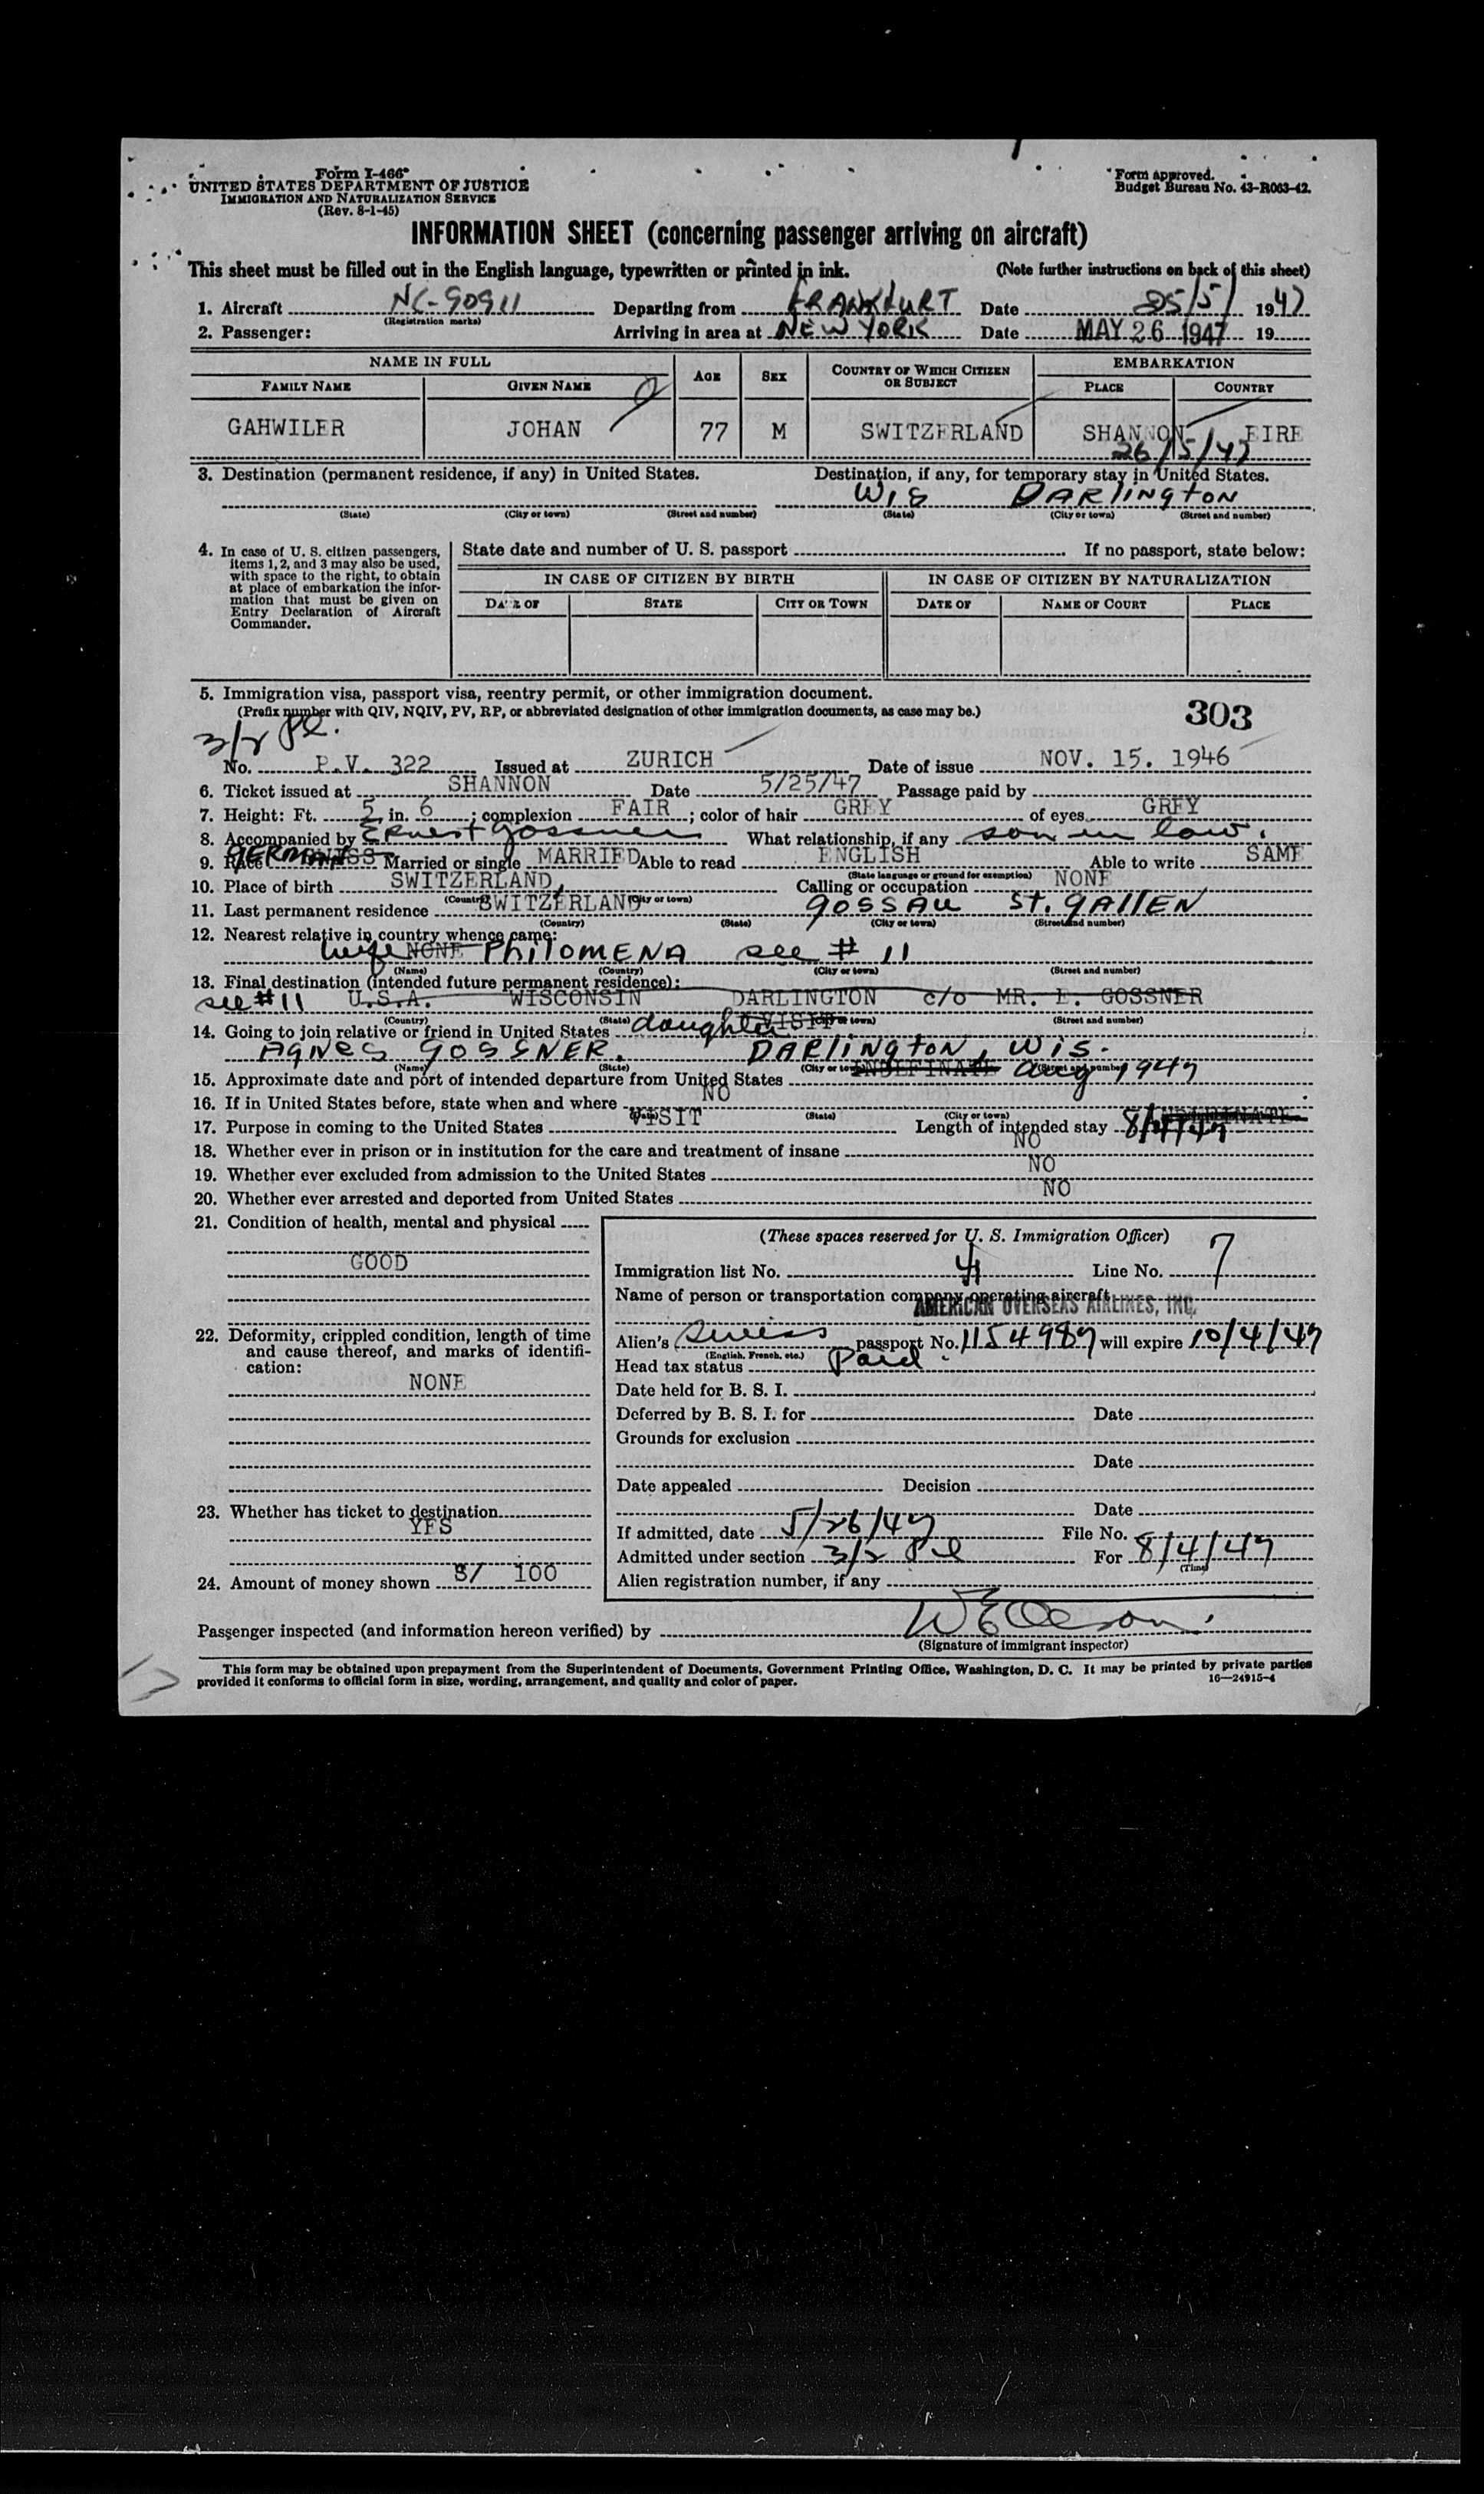 Form I-466
UNITED STATES DEPARTMENT OF JUSTICE
IMMIGRATION AND NATURALIZATION SERVICE
(Rev. 8-1-45)
Form approved.
Budget Bureau No. 43-R063-42.
INFORMATION SHEET (concerning passenger arriving on aircraft)
This sheet must be filled out in the English language, typewritten or printed in ink. (Note further instructions on back of this sheet)
1. Aircraft NC-90911 Departing from FRANKFURT Date 25/5/ 1947
(Registration marks)
2. Passenger: Arriving in area at NEW YORK Date MAY 26 1947 19
NAME IN FULL AGE SEX COUNTRY OF WHICH CITIZEN OR SUBJECT EMBARKATION
FAMILY NAME GIVEN NAME PLACE COUNTRY
GAHWILER JOHAN 77 M SWITZERLAND SHANNON EIRE
26/5/47
3. Destination (permanent residence, if any) in United States. Destination, if any, for temporary stay in United States.
WIS DARLINGTON
(State) (City or town) (Street and number) (State) (City or town) (Street and number)
4. In case of U. S. citizen passengers, items 1, 2, and 3 may also be used, with space to the right, to obtain at place of embarkation the information that must be given on Entry Declaration of Aircraft Commander.
State date and number of U. S. passport If no passport, state below:
IN CASE OF CITIZEN BY BIRTH IN CASE OF CITIZEN BY NATURALIZATION
DATE OF STATE CITY OR TOWN DATE OF NAME OF COURT PLACE
5. Immigration visa, passport visa, reentry permit, or other immigration document.
(Prefix number with QIV, NQIV, PV, RP, or abbreviated designation of other immigration documents, as case may be.)
303
3/2
No. P.V. 322 Issued at ZURICH Date of issue NOV. 15. 1946
6. Ticket issued at SHANNON Date 5/25/47 Passage paid by
7. Height: Ft. 5 in. 6; complexion FAIR; color of hair GREY of eyes GREY
8. Accompanied by Ernest Gossner What relationship, if any son in law.
9. Race GERMAN SWISS Married or single MARRIED Able to read ENGLISH Able to write SAME
(State language or ground for exemption)
10. Place of birth SWITZERLAND, Calling or occupation NONE
(Country) (City or town)
11. Last permanent residence SWITZERLAND GOSSAU ST. GALLEN
(Country) (State) (City or town) (Street and number)
12. Nearest relative in country whence came:
wife NONE PHILOMENA see # 11
(Name) (Country) (City or town) (Street and number)
13. Final destination (intended future permanent residence):
see #11 U.S.A. WISCONSIN DARLINGTON c/o MR. E. GOSSNER
(Country) (State) (City or town) (Street and number)
14. Going to join relative or friend in United States daughter VISIT
AGNES GOSSNER. DARLINGTON, WIS.
(Name) (State) (City or town) (Street and number)
15. Approximate date and port of intended departure from United States INDEFINATE Aug 1947
16. If in United States before, state when and where NO
(Date) (State) (City or town)
17. Purpose in coming to the United States VISIT Length of intended stay INDEFINATE 8/4/47
18. Whether ever in prison or in institution for the care and treatment of insane NO
19. Whether ever excluded from admission to the United States NO
20. Whether ever arrested and deported from United States NO
21. Condition of health, mental and physical
GOOD
22. Deformity, crippled condition, length of time and cause thereof, and marks of identification:
NONE
23. Whether has ticket to destination
YES
24. Amount of money shown $/ 100
(These spaces reserved for U. S. Immigration Officer)
Immigration list No. 4 Line No. 7
Name of person or transportation company operating aircraft
AMERICAN OVERSEAS AIRLINES, INC.
Alien's Swiss passport No. 1154987 will expire 10/4/47
(English, French, etc.)
Head tax status Paid.
Date held for B. S. I.
Deferred by B. S. I. for Date
Grounds for exclusion
Date
Date appealed Decision
Date
If admitted, date 5/26/47 File No.
Admitted under section 3/2 For 8/4/47
(Time)
Alien registration number, if any
Passenger inspected (and information hereon verified) by
(Signature of immigrant inspector)
This form may be obtained upon prepayment from the Superintendent of Documents, Government Printing Office, Washington, D. C. It may be printed by private parties
provided it conforms to official form in size, wording, arrangement, and quality and color of paper. 16—24915-4